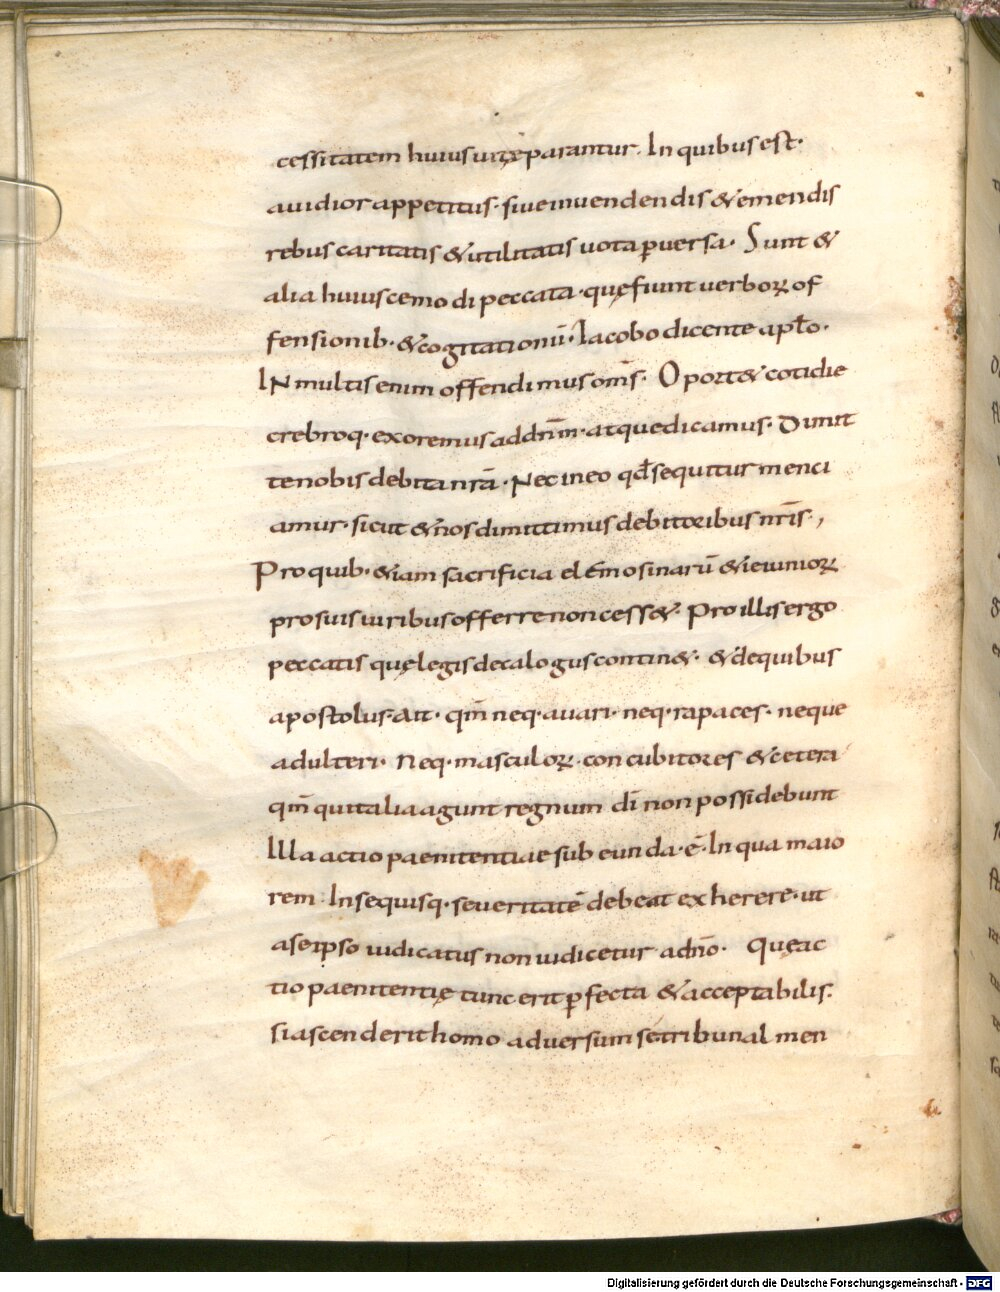 cessitatem huius uitę parantur. In quibus est.
auidior appetitus. siue in uendendis & emendis
rebus caritatis & utilitatis uota ꝑuersa. Sunt &
alia huiuscemodi peccata. quę fiunt uerboꝝ of
fensionib. & cogitationū. Iacobo dicente aplo.
IN multis enim offendimus om̄s. Oport& cotidie
crebroq. exoremus ad dn̄m. atque dicamus. Dimit
te nobis debita nr̄a. Nec in eo qđ sequitur menci
amur. sicut & nos dimittimus debitoribus nr̄is,
Pro quib. &iam sacrificia elemosinarū & ieiunioꝝ
pro suis uiribus offerre non cess&. Pro illis ergo
peccatis quę legis decalogus contin&. & de quibus
apostolus. ait. qm̄ neq. auari. neq. rapaces. neque
adulteri. Neq. masculoꝝ concubitores & cetera
qm̄ qui talia agunt regnum dī non possidebunt
Illa actio paenitentiae subeunda. ē. In qua maio
rem. In se quisq. seueritatē debeat exherere. ut
a seipso iudicatus non iudicetur a dn̄o. Quę ac
tio paenitentię tunc erit ꝑfecta & acceptabilis.
si ascenderit homo aduersum se tribunal men
Digitalisierung gefördert durch die Deutsche Forschungsgemeinschaft - DFG